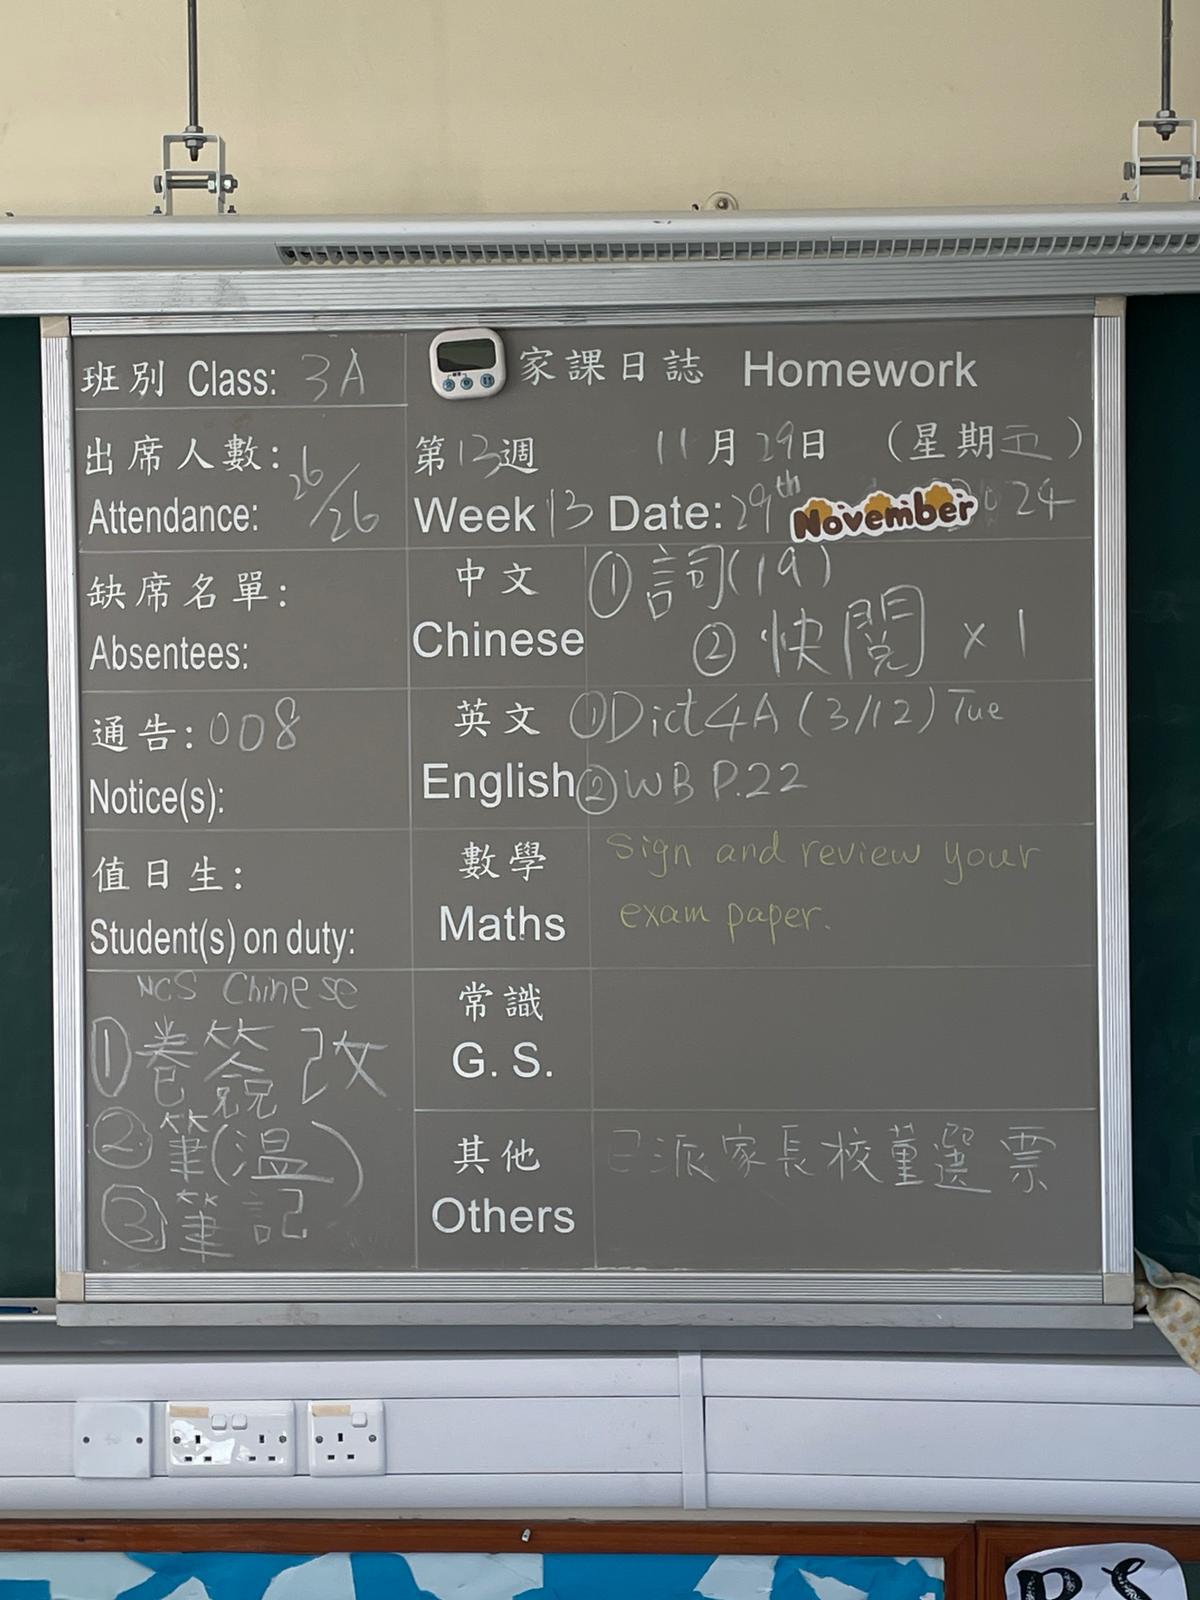 班別 Class: 3A
出席人數: 26/26
Attendance:
缺席名單:
Absentees:
通告: 008
Notice(s):
值日生:
Student(s) on duty:
NCS Chinese
①卷簽改
②筆(溫)
③筆記
家課日誌 Homework
第13週 11月29日 (星期五)
Week 13 Date: 29th November 2024
中文 ①詞(19)
Chinese ②快閱 x 1
英文 ①Dict 4A (3/12) Tue
English ②WB P.22
數學 Sign and review your
Maths exam paper.
常識
G. S.
其他 已派家長校董選票
Others